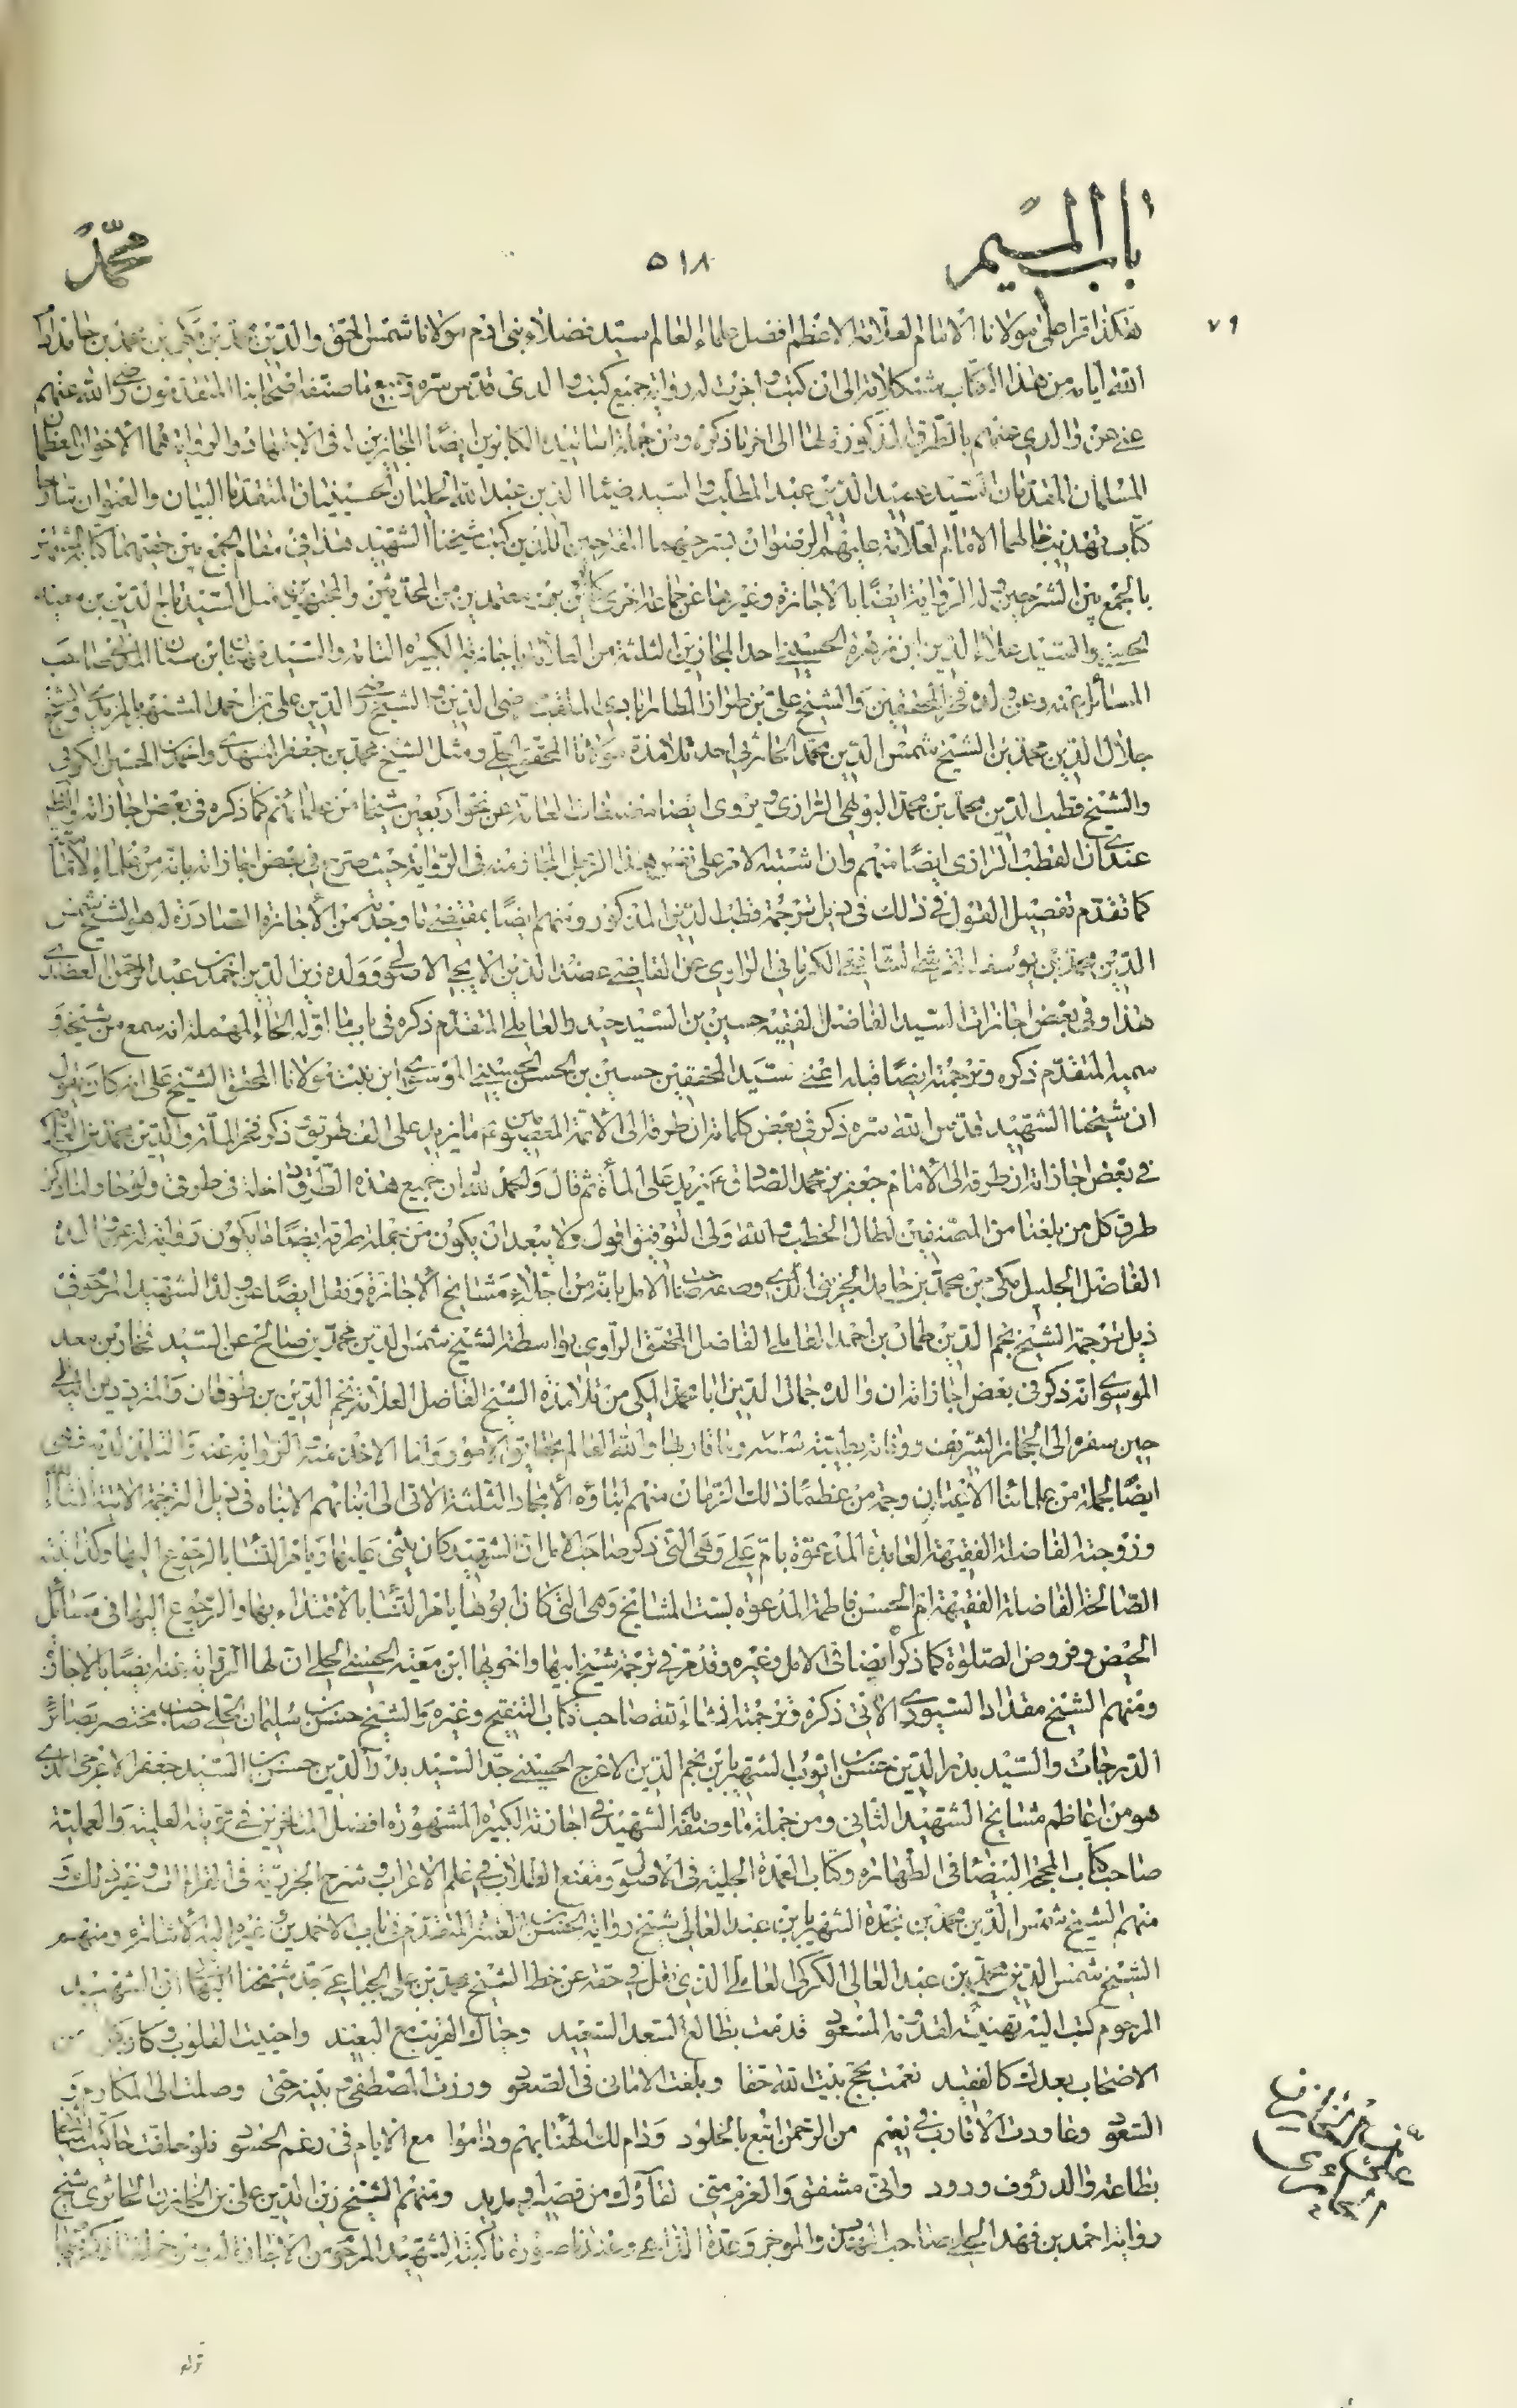 باب الميم
٥١٨
محمد
٧٩
هكذا قرأ على مولانا الامام العلامة الاعظم افضل علماء العالم سيد فضلاء بنى ادم مولانا شمس الحق والدين محمد بن مكى بن محمد بن حامد ادام
الله ايامه من هذا الكتاب مشكلاته الى ان كتب واجزت له رواية جميع كتب والدى قدس سره وجميع ما صنفه اصحابنا المتقدمون رضى الله عنهم
عنى عن والدى عنهم بالطرق المذكورة لها الى اخر ما ذكره ومن جملة اساتيده الكابرين ايضا المجازين له فى الاجتهاد والرواية هما الاخوان العظمان
المسلمان المقدمان السيد عميد الدين عبد المطلب والسيد ضياء الدين عبد الله الحليان الحسينيان المتقدما البيان والعنوان شارحا
كتاب تهذيب خالهما الامام العلامة عليهم الرضوان بشرحيهما اللذين كتب شيخنا الشهيد هذا فى مقام الجمع بين حقهما كتابه
بالجمع بين الشرحين وله الرواية ايضا بالاجازة وغيرها عن جماعة اخرى معتمدين من المحدثين والمجتهدين مثل السيد تاج الدين بن معية
الحسنى والسيد علاء الدين ابن زهرة الحسينى احد المجازين الثلثة من العلامة باجازته الكبيرة التامة والسيد مهنا ابن سنان المدنى صاحب
المسائل عنه وعن ولده فخر المحققين والشيخ على بن طراز المطارابادى الملقب رضى الدين والشيخ رضى الدين على بن احمد المشتهر بالمزيدى والشيخ
جلال الدين محمد بن الشيخ شمس الدين محمد الحارثى احد تلامذة مولانا المحقق الحلى ومثل الشيخ محمد بن جعفر المشهدى واحمد بن الحسين الكوفى
والشيخ قطب الدين محمد بن محمد البويهى الرازى ويروى ايضا مصنفات العامة عن نحو اربعين شيخا من علمائهم كما ذكره فى بعض اجازاته والظاهر
عندى ان القطب الرازى ايضا منهم وان اشتبه الامر على نفس هذا الرجل المجاز منه فى الرواية حيث صرح فى بعض اجازاته بانه من علماء الامامية
كما تقدم تفصيل القول فى ذلك فى ذيل ترجمة قطب الدين المذكور ومنهم ايضا بمقتضى ما وجدته من الاجازة الصادرة له هو الشيخ شمس
الدين محمد بن يوسف القرشى الشافعى الكرمانى الراوى عن القاضى عضد الدين الايجى الاصولى وولده زين الدين احمد بن عبد الرحمن العضدى
هذا وفى بعض اجازات السيد الفاضل الفقيه حسين بن السيد حيدر العاملى المتقدم ذكره فى باب ما اوله الحاء المهملة انه سمع من شيخه و
سميه المتقدم ذكره وترجمته ايضا قبله اعنى سيد المحققين حسين بن الحسن الحسينى الموسوى ابن بنت مولانا المحقق الشيخ على انه كان يقول
ان شيخنا الشهيد قدس الله سره ذكر فى بعض كلماته ان طرقه الى الائمة المعصومين ع ما يزيد على الف طريق وذكر فخر الملة والدين محمد بن العلامة
فى بعض اجازاته ان طرقه الى الامام جعفر بن محمد الصادق ع تزيد على المأة ثم قال والحمد لله ان جميع هذه الطرق داخلة فى طرقى ولو حاولنا ذكر
طرق كل من بلغنا من المصنفين لطال الخطب والله ولى التوفيق اقول ولا يبعد ان يكون من جملة طرقه ايضا ما يكون روايته له عن والده
الفاضل الجليل مكى بن محمد بن حامد الجزينى الذى وصفه صاحب الامل بانه من اجلاء مشايخ الاجازة ونقل ايضا عن ولده الشهيد المرحوم فى
ذيل ترجمة الشيخ نجم الدين طمان بن احمد العاملى الفاضل المحقق الراوى بواسطة الشيخ شمس الدين محمد بن صالح عن السيد فخار بن معد
الموسوى انه ذكر فى بعض اجازاته ان والده جمال الدين ابا محمد المكى من تلامذة الشيخ الفاضل العلامة نجم الدين بن طومان والمترددين اليه الى
حين سفره الى الحجاز الشريف ووفاته بطيبة سنة وما قاربها والله العالم بحقايق الامور واما الاخذ منه الرواية عنه والتلمذ لديه فهى
ايضا لجملة من علمائنا الاعيان وجمة من عظماء ذلك الزمان منهم ابناؤه الامجاد الثلثة الاتى الى انبائهم الانباه فى ذيل الترجمة الاتية انشاء الله
وزوجته الفاضلة الفقيهة العابدة المدعوة بام على وهى التى ذكر صاحب الامل ان الشهيد كان يثنى عليها ويامر النساء بالرجوع اليها وكذا ابنته
الصالحة الفاضلة الفقيهة ام الحسن فاطمة المدعوة بست المشايخ وهى التى كان ابوها يامر النساء بالاقتداء بها والرجوع اليها فى مسائل
الحيض وفروض الصلوة كما ذكر ايضا فى الامل وغيره وقد مر فى ترجمة شيخ ابيها واخويها ابن معية الحسنى الحلى ان لها الرواية عنه ايضا بالاجازة
ومنهم الشيخ مقداد السيورى الاتى ذكره وترجمته انشاء الله صاحب كتاب التنقيح وغيره والشيخ حسن بن سليمان الحلى صاحب مختصر بصائر
الدرجات والسيد بدر الدين حسن بن ايوب الشهير بابن نجم الدين الاعرج الحسينى جد السيد بدر الدين حسن بن السيد جعفر الاعرجى الذى
هو من اعاظم مشايخ الشهيد الثانى ومن جملة ما وصفه به الشهيد فى اجازته الكبيرة المشهورة افضل المتاخرين فى قوتيه العلمية والعملية
صاحب كتاب المحجة البيضاء فى الطهارة وكتاب العمدة الجلية فى الاصول ومقنع الطلاب فى علم الاعراب وشرح الجزرية فى القراءات وغير ذلك و
منهم الشيخ شمس الدين محمد بن نجدة الشهير بابن عبد العالى شيخ رواية الحسن بن العشرة المتقدم فى باب الاحمدين وغيره اليه الاشارة ومنهم
الشيخ شمس الدين محمد بن عبد العالى الكركى العاملى الذى نقل فى حقه عن خط الشيخ محمد بن على الجباعى جد شيخنا البهائى ان الشهيد
المرحوم كتب اليه تهنئة لقدومه المسعود قدمت بطالع السعد السعيد وحياك القريب مع البعيد واحييت القلوب وكان كل من
الاصحاب بعدك كالفقيد نعمت بحج بيت الله حقا وبلغت الامانى فى الصعود وزرت المصطفى وبنيه حتى وصلت الى المكارم و
السعود وعاودت الاقارب فى نعيم من الرحمن اتبع بالخلود ودام لك الهنا بهم وداموا مع الايام فى رغم الحسود فلو حلفت
بطاعة والد رؤف ودود وانى مشفق والعزم منى لقاؤك من قصير او مديد ومنهم الشيخ زين الدين على بن الخازن الحائرى شيخ
رواية احمد بن فهد الحلى صاحب المهذب والموجز وعدة الداعى وعندنا صورة ما كتبه الشهيد المرحوم من الاجازة له